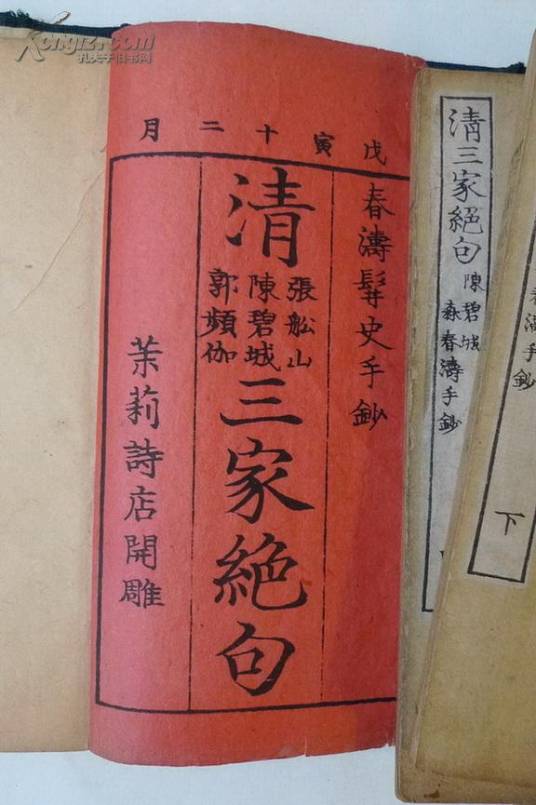 Kongfz.com
孔夫子旧书网
戊寅十二月
春濤髯史手鈔
清三家絕句
張船山
陳碧城
郭頻伽
茉莉詩店開雕
清三家絕句
陳碧城
森春濤手鈔
春濤手鈔
下